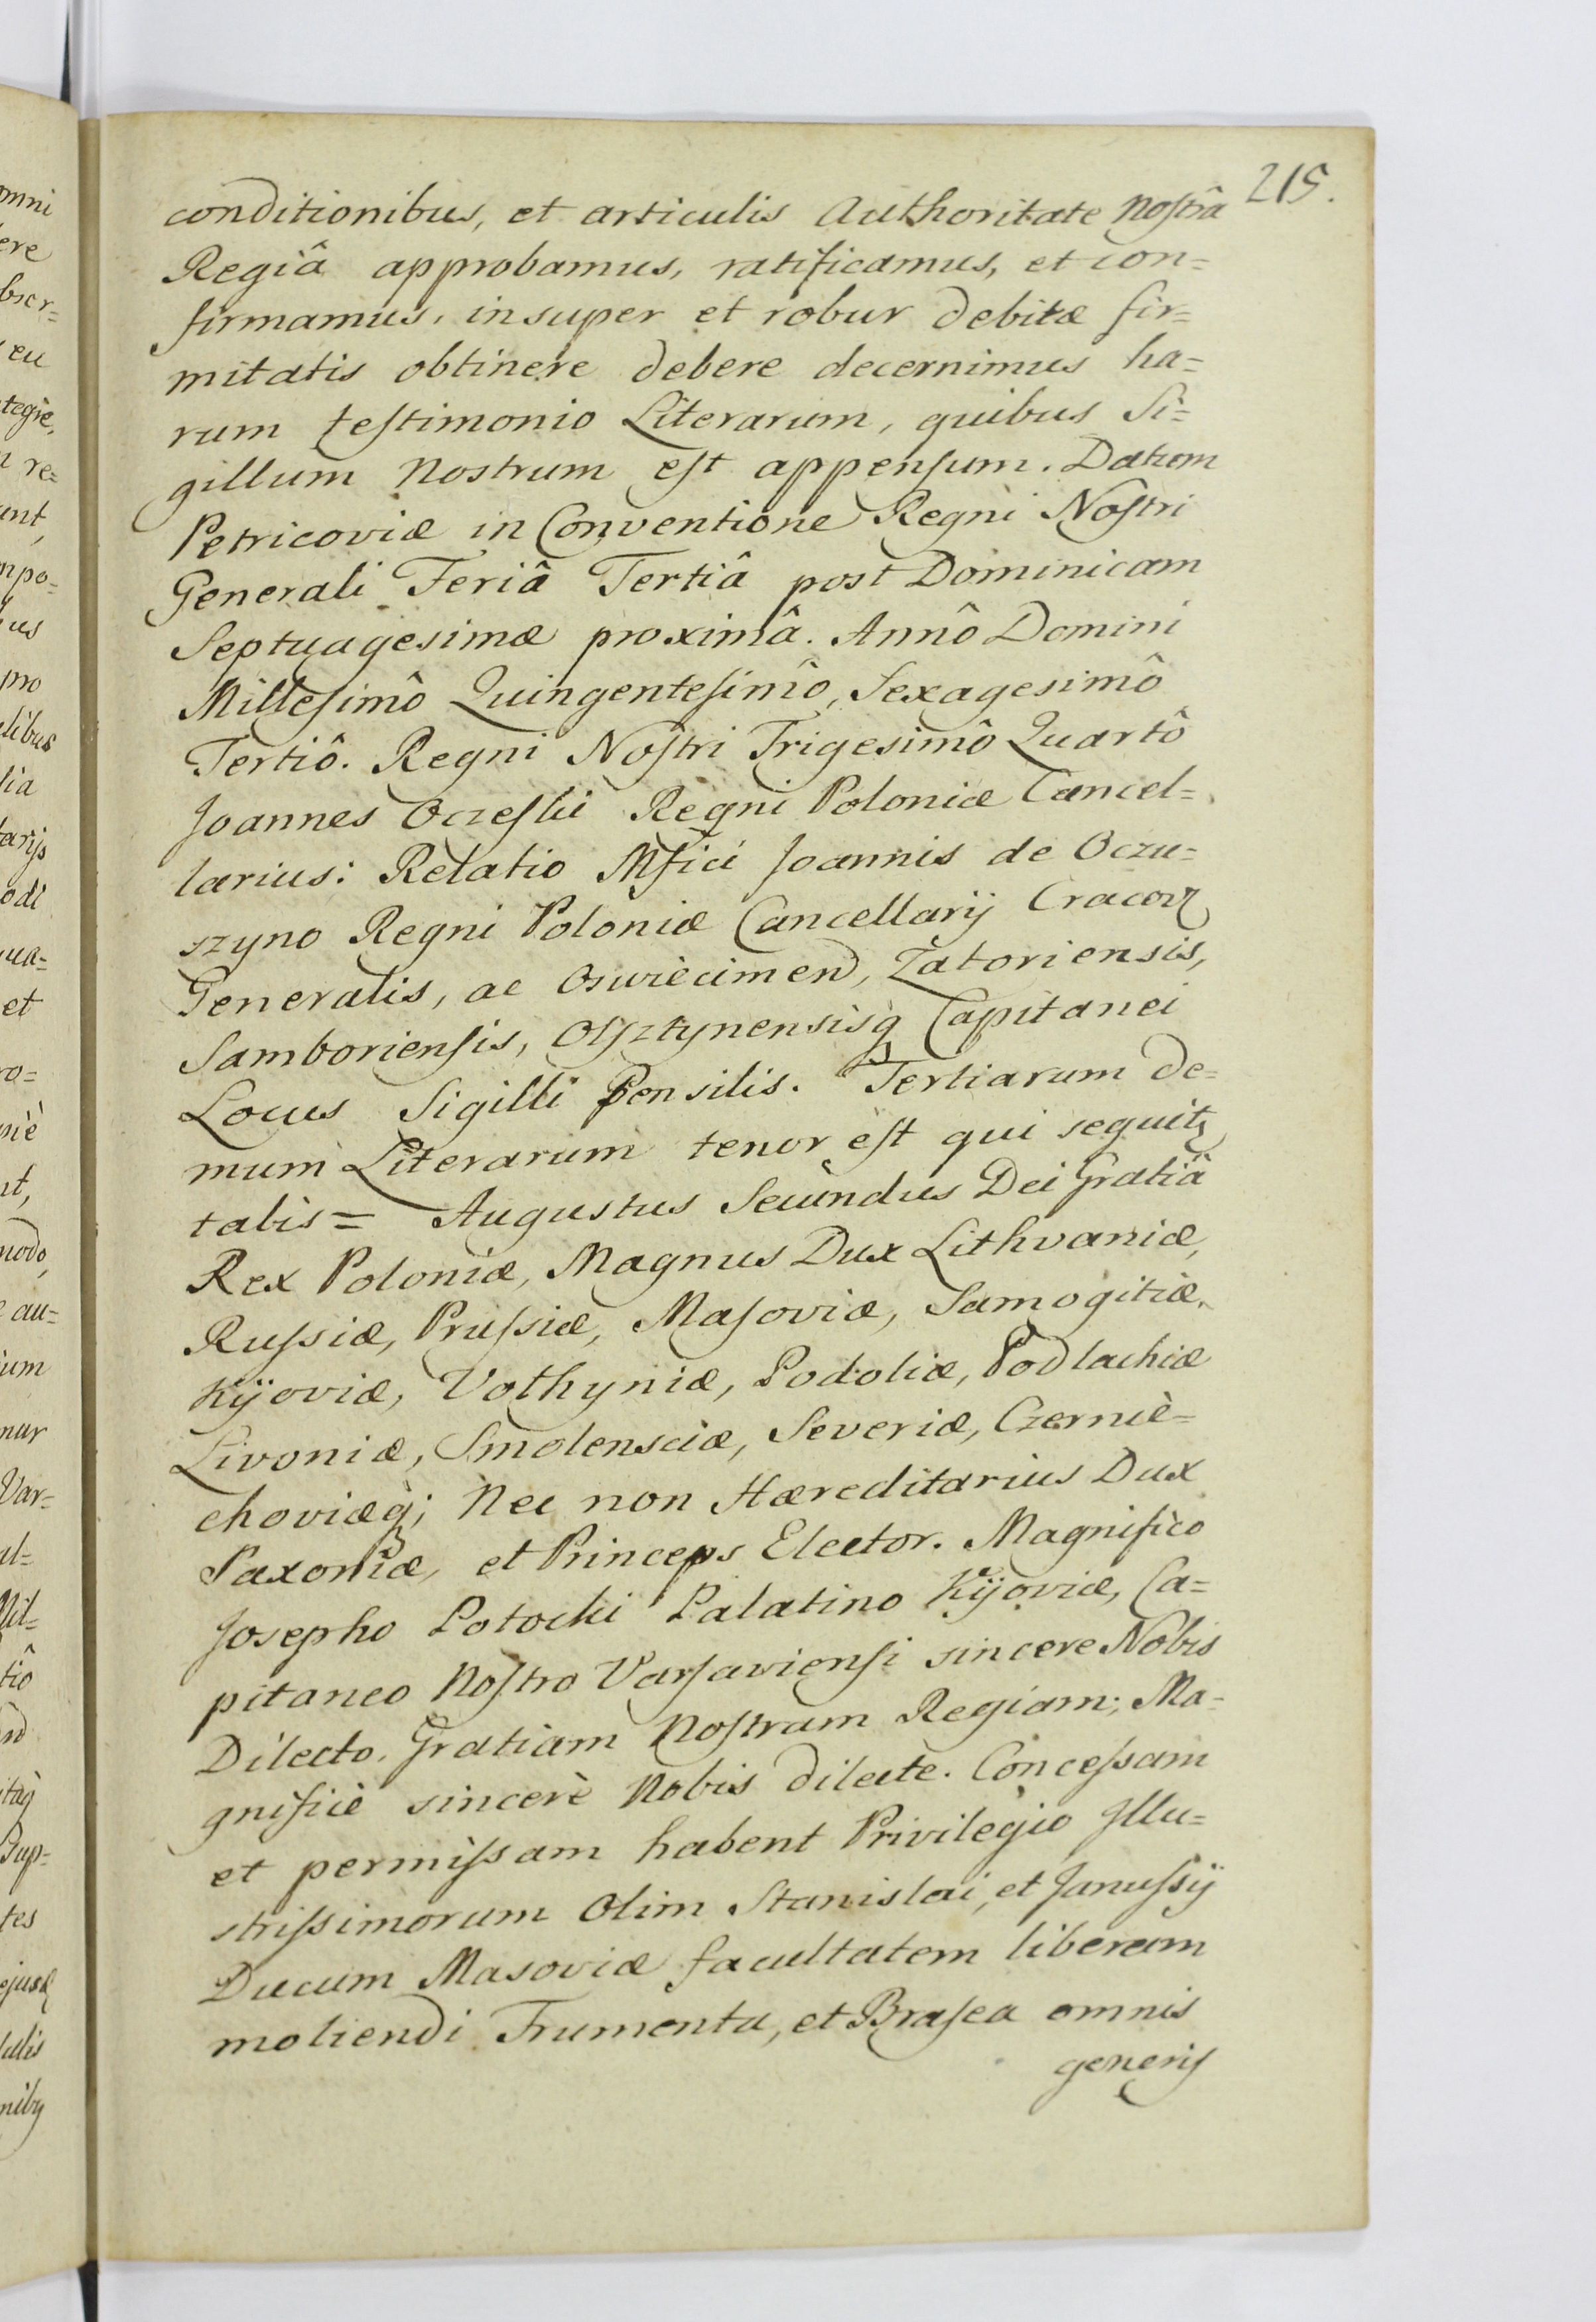 215.
conditionibus, et articulis Authoritate Nostrâ
Regiâ approbamus, ratificamus, et con=
firmamus, insuper et robur debitæ fir=
mitatis obtinere debere decernimus ha=
rum testimonio Literarum, quibus Si=
gillum Nostrum est appensum. Datum
Petricoviæ in Conventione Regni Nostri
Generali Feriâ Tertiâ post Dominicam
Septuagesimæ proximâ. Annô Domini
Millesimô Quingentesimô, Sexagesimô
Tertiô. Regni Nostri Trigesimô Quartô
Joannes Oczeski Regni Poloniæ Cancel=
larius: Relatio Mfici Joannis de Oczu=
szyno Regni Poloniæ Cancellarij Cracov
Generalis, ac Oswiècimen, Zatoriensis,
Samboriensis, Olsztynensisq Capitanei
Locus Sigilli Pensilis. Tertiarum de=
mum Literarum tenor est qui sequit
talis= Augustus Secundus Dei Gratiâ
Rex Poloniæ, Magnus Dux Lithvaniæ,
Russiæ, Prussiæ, Masoviæ, Samogitiæ,
Kÿoviæ, Volhyniæ, Podoliæ, Podlachiæ
Livoniæ, Smolensciæ, Severiæ, Czernie=
choviæq; Nec non Hæreditarius Dux
Saxoniæ, et Princeps Elector. Magnifico
Josepho Potocki Palatino Kÿoviæ, Ca=
pitaneo Nostro Varsaviensi sincere Nobis
Dilecto. Gratiam Nostram Regiam; Ma=
gnificè sincerè Nobis dilecte. Concessam
et permissam habent Privilegio Illu=
strissimorum Olim Stanislai, et Janussÿ
Ducum Masoviæ facultatem liberam
moliendi Frumenta, et Brasea omnis
generis
omni
ere
eu
tegre,
re=
unt,
mpo=
us
pro
libus
lia
odi
ua=
et
ro=
niè
nt,
modo,
au=
ium
nur
Var=
al=
tiô
tes
nib9